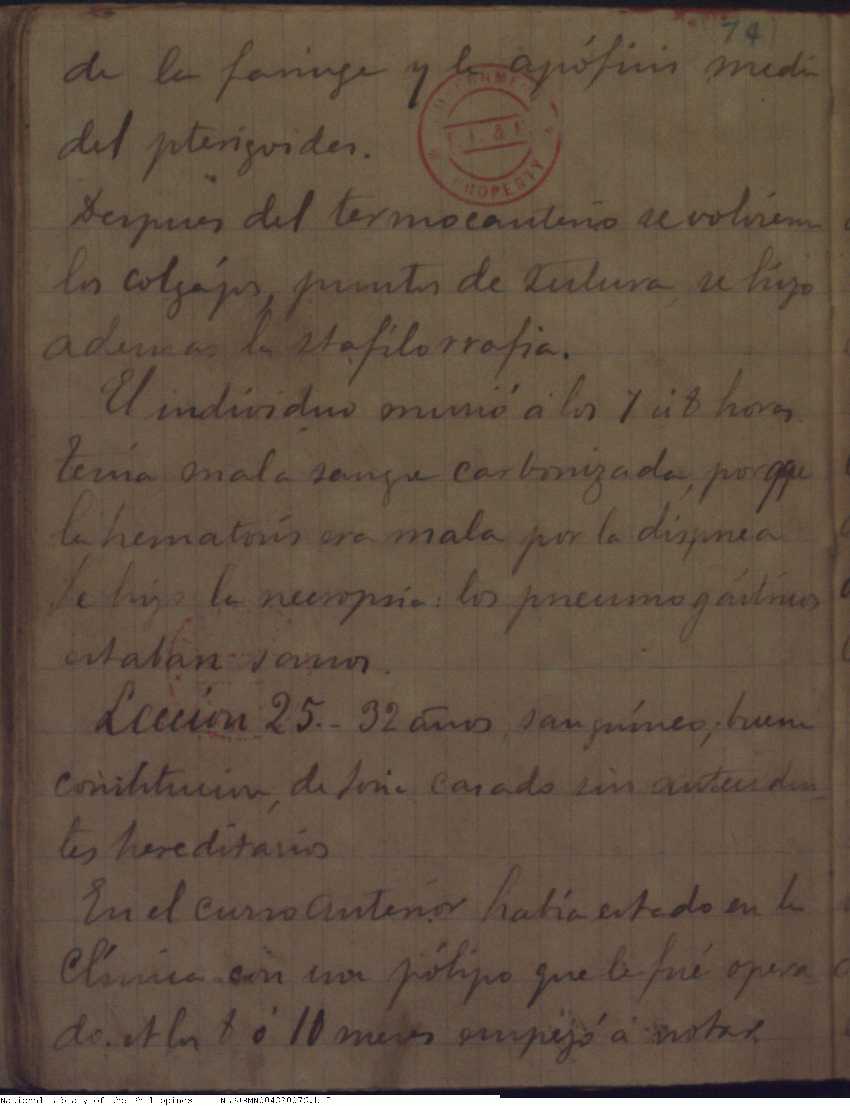 74
de la faringe y la apófisis media
del pterigoides.
Despues del termocauterio se volvieron
los colgájos, puntos de sutura, se hizo
ademas la stafilorrafia.
El individuo murió á los 7 ú 8 horas
tenia mala sangre carbonizada, porque
la hematosis era mala por la dispnea
Se hizo la necropsia: los pneumogástricos
estaban sanos.
Leccion 25.- 32 años, sanguíneo, buena
constitucion, de Soria casado sin anteceden
tes hereditarios
En el curso anterior había estado en la
Clínica con un pólipo que le fué opera
do. A los 8 ó 10 meses empezó á notar
PROPERTY
National Library of the Philippines